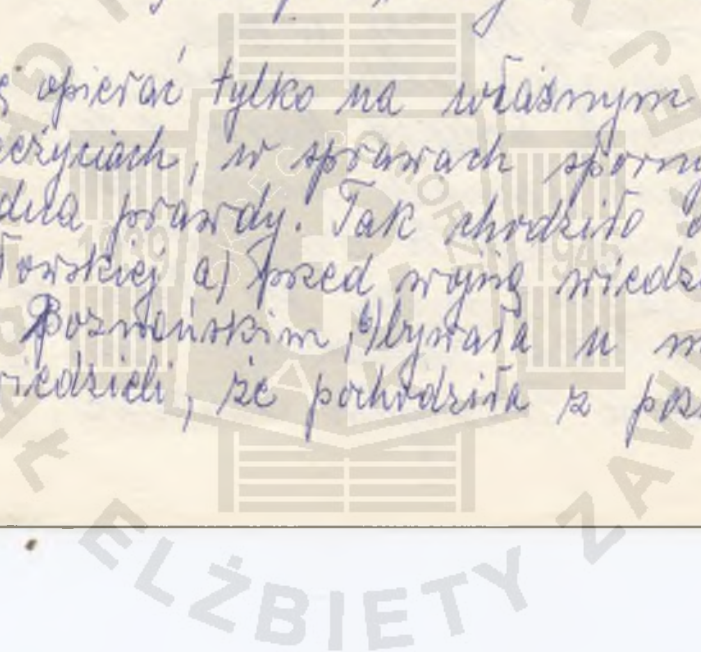 opierać tylko na własnym
eżyciach, w sprawach sporny
dna prawdy. Tak chodziło
łowskiej a) przed wojną wiedzi
Poznańskim, b) bywała u m
iedzieli, że pochodziła z poz
1939
1945
POMORZ
ELŻBIETY ZAW